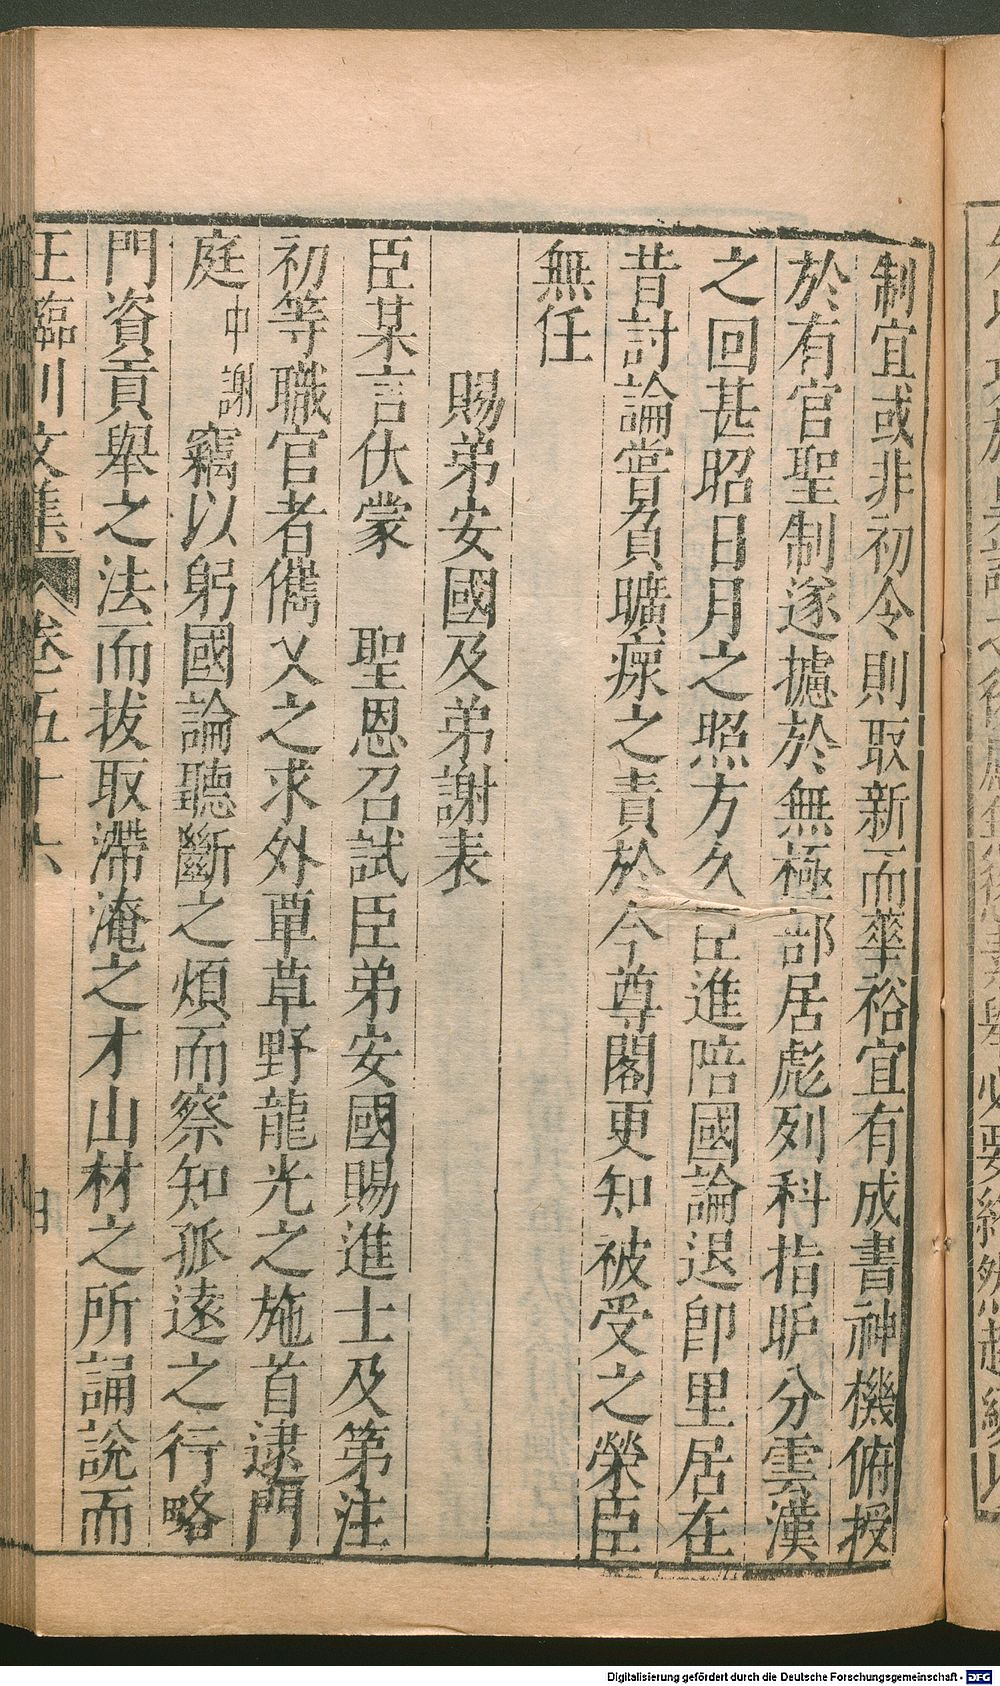 制宜或非初令則取新而華裕宜有成書神機俯授
於有官聖制遂攄於無極部居彪列科指昈分雲漢
之回甚昭日月之照方久臣進陪國論退卽里居在
昔討論嘗負曠瘝之責於今尊閣更知被受之榮臣
無任
賜弟安國及弟謝表
臣某言伏蒙　聖恩召試臣弟安國賜進士及第注
初等職官者儁乂之求外覃草野龍光之施首逮門
庭中謝竊以躬國論聽斷之煩而察知孤遠之行略
門資貢舉之法而拔取滯淹之才山材之所誦說而
王臨川文集 卷五十六
Digitalisierung gefördert durch die Deutsche Forschungsgemeinschaft - DFG